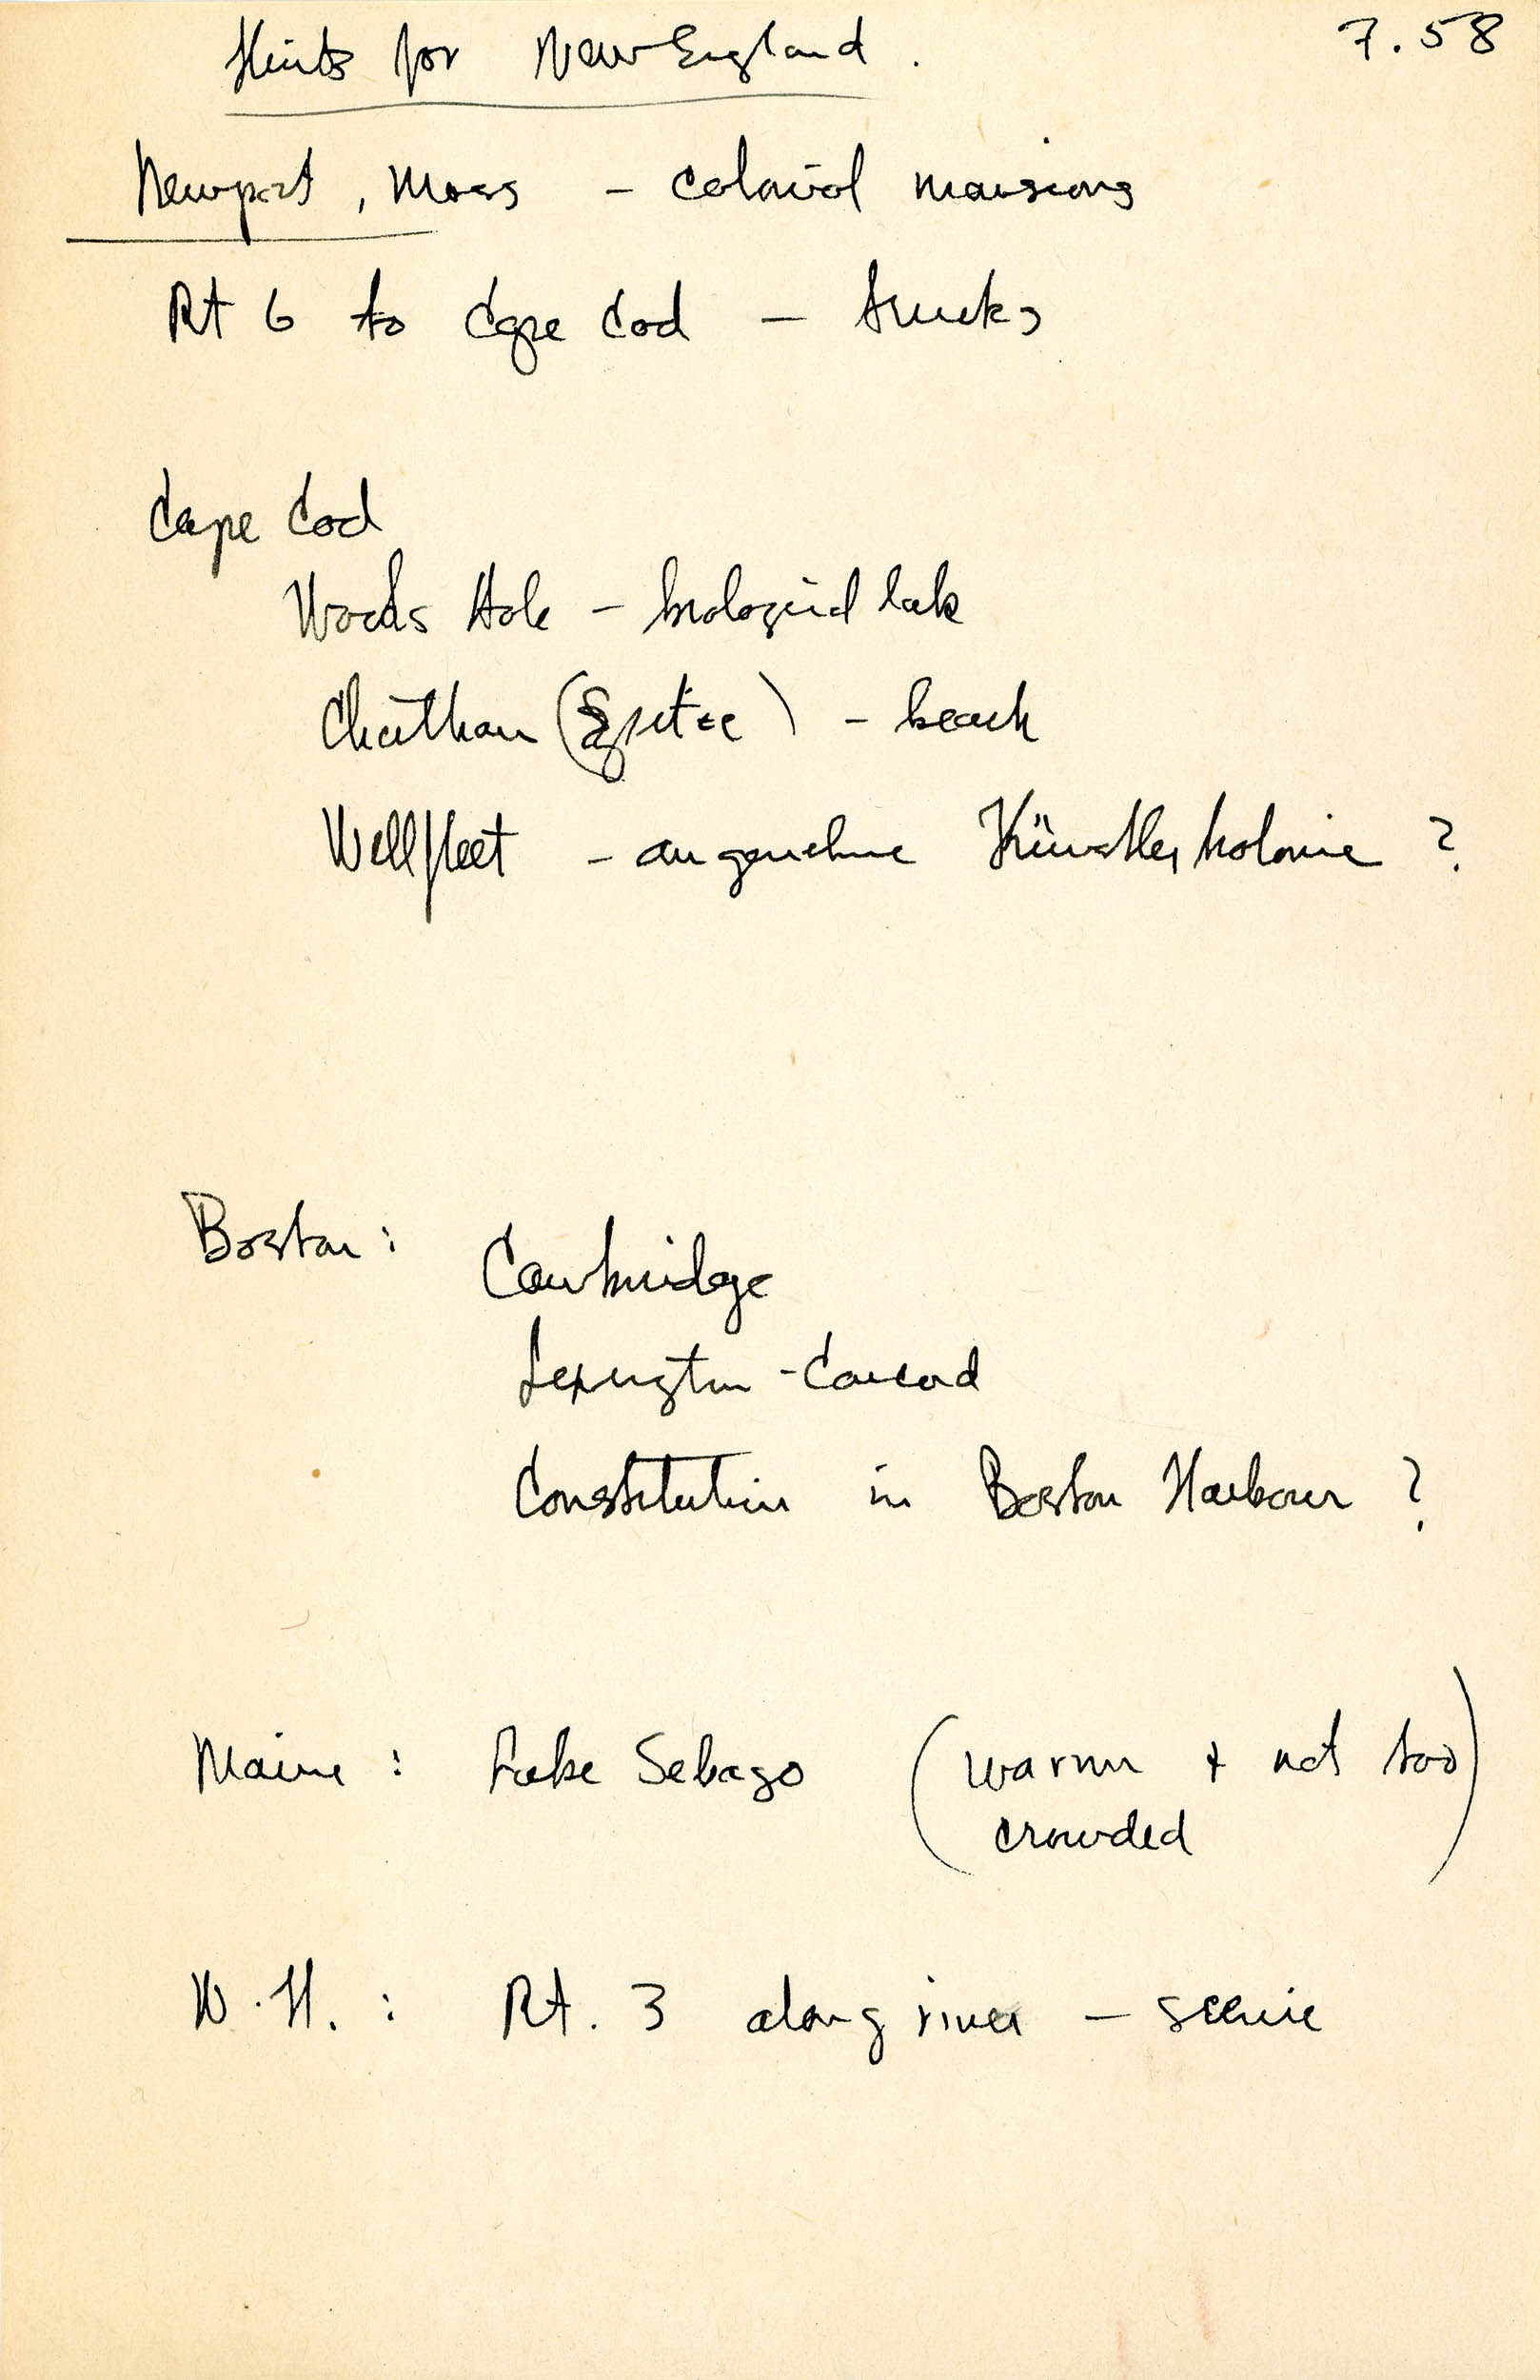 Hints for New England.
7.58
Newport, Mass - colonial mansions
Rt 6 to Cape Cod - trucks
Cape Cod
Woods Hole - biological lab
Chatham (Spitze) - beach
Wellfleet - angenehme Künstlerkolonie ?
Boston :
Cambridge
Lexington - Concord
Constitution in Boston Harbour ?
Maine : Lake Sebago (warm & not too
crowded)
N.H. : Rt. 3 along river - scenic